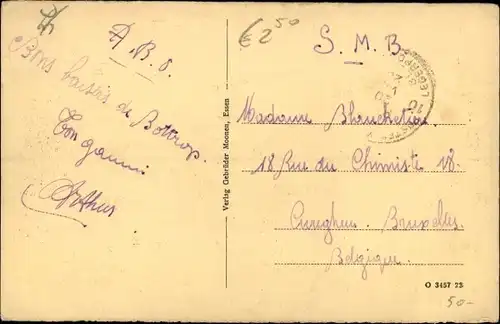 €2 50
A.B.S.
Bons baisers de Bottrop.
Ton gamin
Arthur
Verlag Gebrüder Moonen, Essen
S. M. B.
Madame
18 Rue du Chimiste 18.
Cureghem. Bruxelles.
Belgique.
O 3457 23
50-